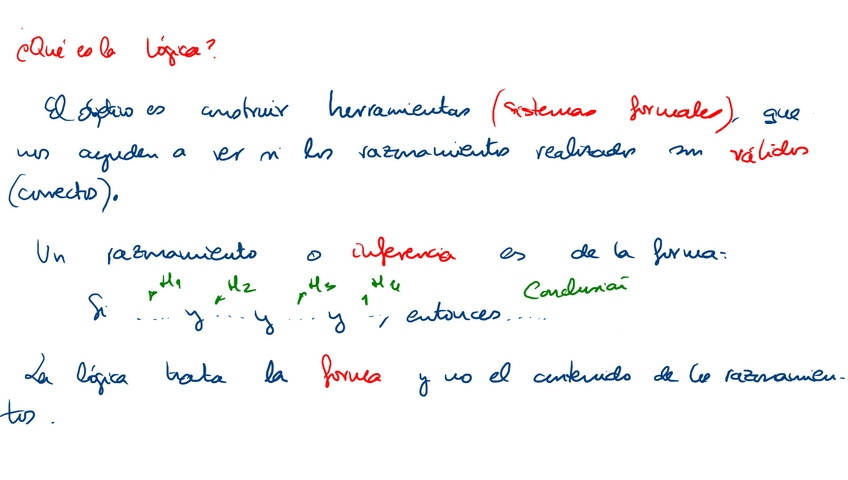 ¿Qué es la lógica?
El objetivo es construir herramientas (sistemas formales), que
nos ayuden a ver si los razonamientos realizados son válidos
(correctos).
Un razonamiento o inferencia es de la forma:
H1 H2 H3 H4 Conclusión
Si ..... y .... y .... y ..., entonces ......
La lógica trata la forma y no el contenido de los razonamien-
tos.